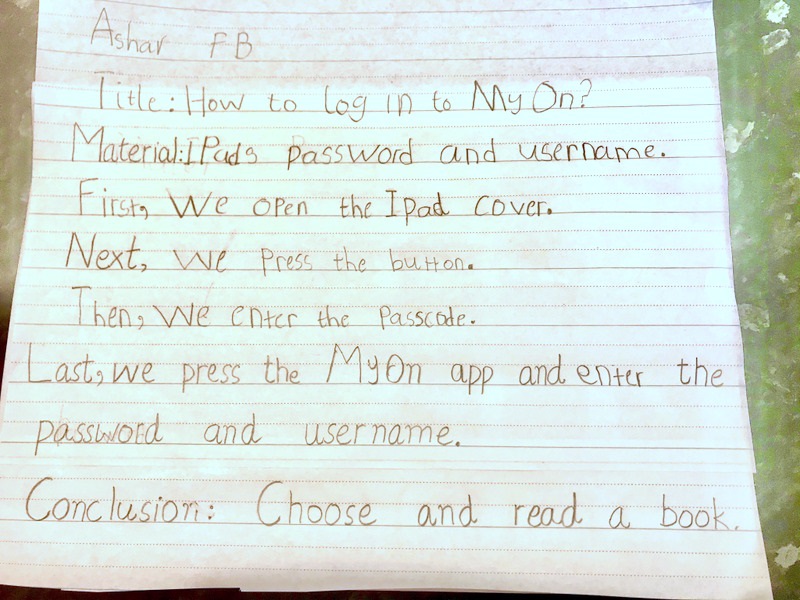 Ashar FB
Title: How to log in to My On?
Material: IPads password and username.
First, We open the Ipad cover.
Next, we press the button.
Then, We enter the passcode.
Last, we press the MyOn app and enter the
password and username.
Conclusion: Choose and read a book.